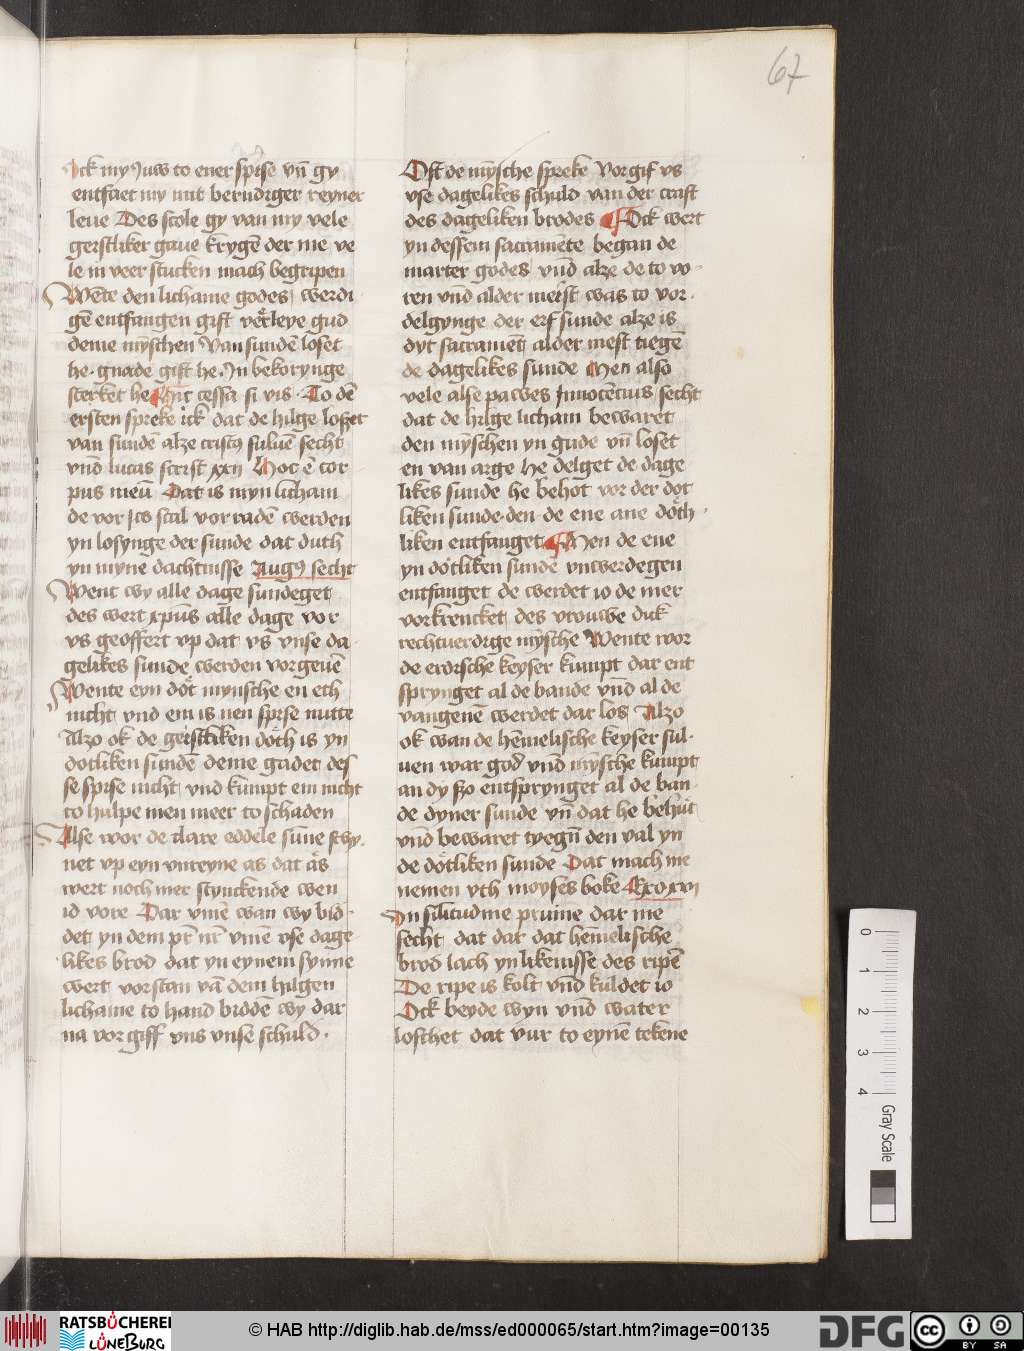 67
Jck my Juw to ener spise vn̄ gy
entfaet my mit berudiger reyner
leue Des scole gy van my vele
geistliker gaue krygē der me ve
le in veer stucken mach begripen
Wēte den lichame godes werdi
gē entfangen gift veerleye gud
deme mȳschen Van sundē loset
he · gnade gift he Jn bekorynge
sterket he nit cessa si vis · To dē
ersten spreke ick dat de hilge loset
van sundē alze cristꝯ suluē secht
vnd lucas scrift xxij Hoc ē cor
pus meū Dat is myn licham
de vor jw scal vorradē werden
yn losynge der sunde dat duth
yn myne dachtnisse Augꝯ secht
Went wy alle dage sundeget
des wert xp̄us alle dage vor
vs geoffert vp dat vs vnse da
gelikes sunde werden vorgeuē
Wente eyn dot mynsche en eth
nicht vnd em is nen spise nutte
Alzo ok de geistliken doth is yn
dotliken sundē deme gadet des
se spise nicht vnd kumpt em nicht
to hulpe men meer to schaden
Alse wor de clare eddele sūne schy
net vp eyn vnreyne as dat as
wert noch mer stynckende wen
id vore Dar vmē wan wy bid
det yn dem pr̄ nr̄ vmē vse dage
likes brod dat yn eynem synne
wert vorstan vā dem hilgen
lichame to hand biddē wy dar
na vorgiff vns vnse schuld ·
Oft de mȳsche spreke Vorgif vs
vse dagelikes schuld van der craft
des dageliken brodes Ock wert
yn dessem sacramēte began de
marter godes vnd alze de to vo
ren vnd alder meist was to vor
delgynge der erf sunde alze is
dyt sacramēt alder mest tiegē
de dagelikes sunde Men also
vele alse pawes Jnnocēcius secht
dat de hilge licham bewaret
den mȳschen yn gude vn̄ loset
en van arge he delget de dage
likes sunde he behot vor der dot
liken sunde · den de ene ane doth
liken entfanget Men de ene
yn dotliken sunde vnwerdegen
entfanget de werdet io de mer
vorkrencket des vrouwe dick
rechtuerdige mȳsche Wente wor
de erdische keyser kumpt dar ent
sprynget al de bande vnd al de
vangenē werdet dar los Alzo
ok wan de hēmelische keyser sul
uen war god vnd mȳsche kumpt
an dy szo entsprynget al de ban
de dyner sunde vn̄ dat he behut
vnd bewaret tyegn̄ den val yn
de dotliken sunde Dat mach me
nemen vth moyses boke Exo xvi
Jn silitudine pruine dar me
secht dat dar dat hēmelische
brod lach yn likenisse des ripē
De ripe is kolt vnd kuldet io
Ock beyde wyn vnd water
loschet dat vur to eynē tekene
0
1
2
3
4
Gray Scale
RATSBÜCHEREI
LÜNEBURG
© HAB http://diglib.hab.de/mss/ed000065/start.htm?image=00135
DFG
cc
BY SA